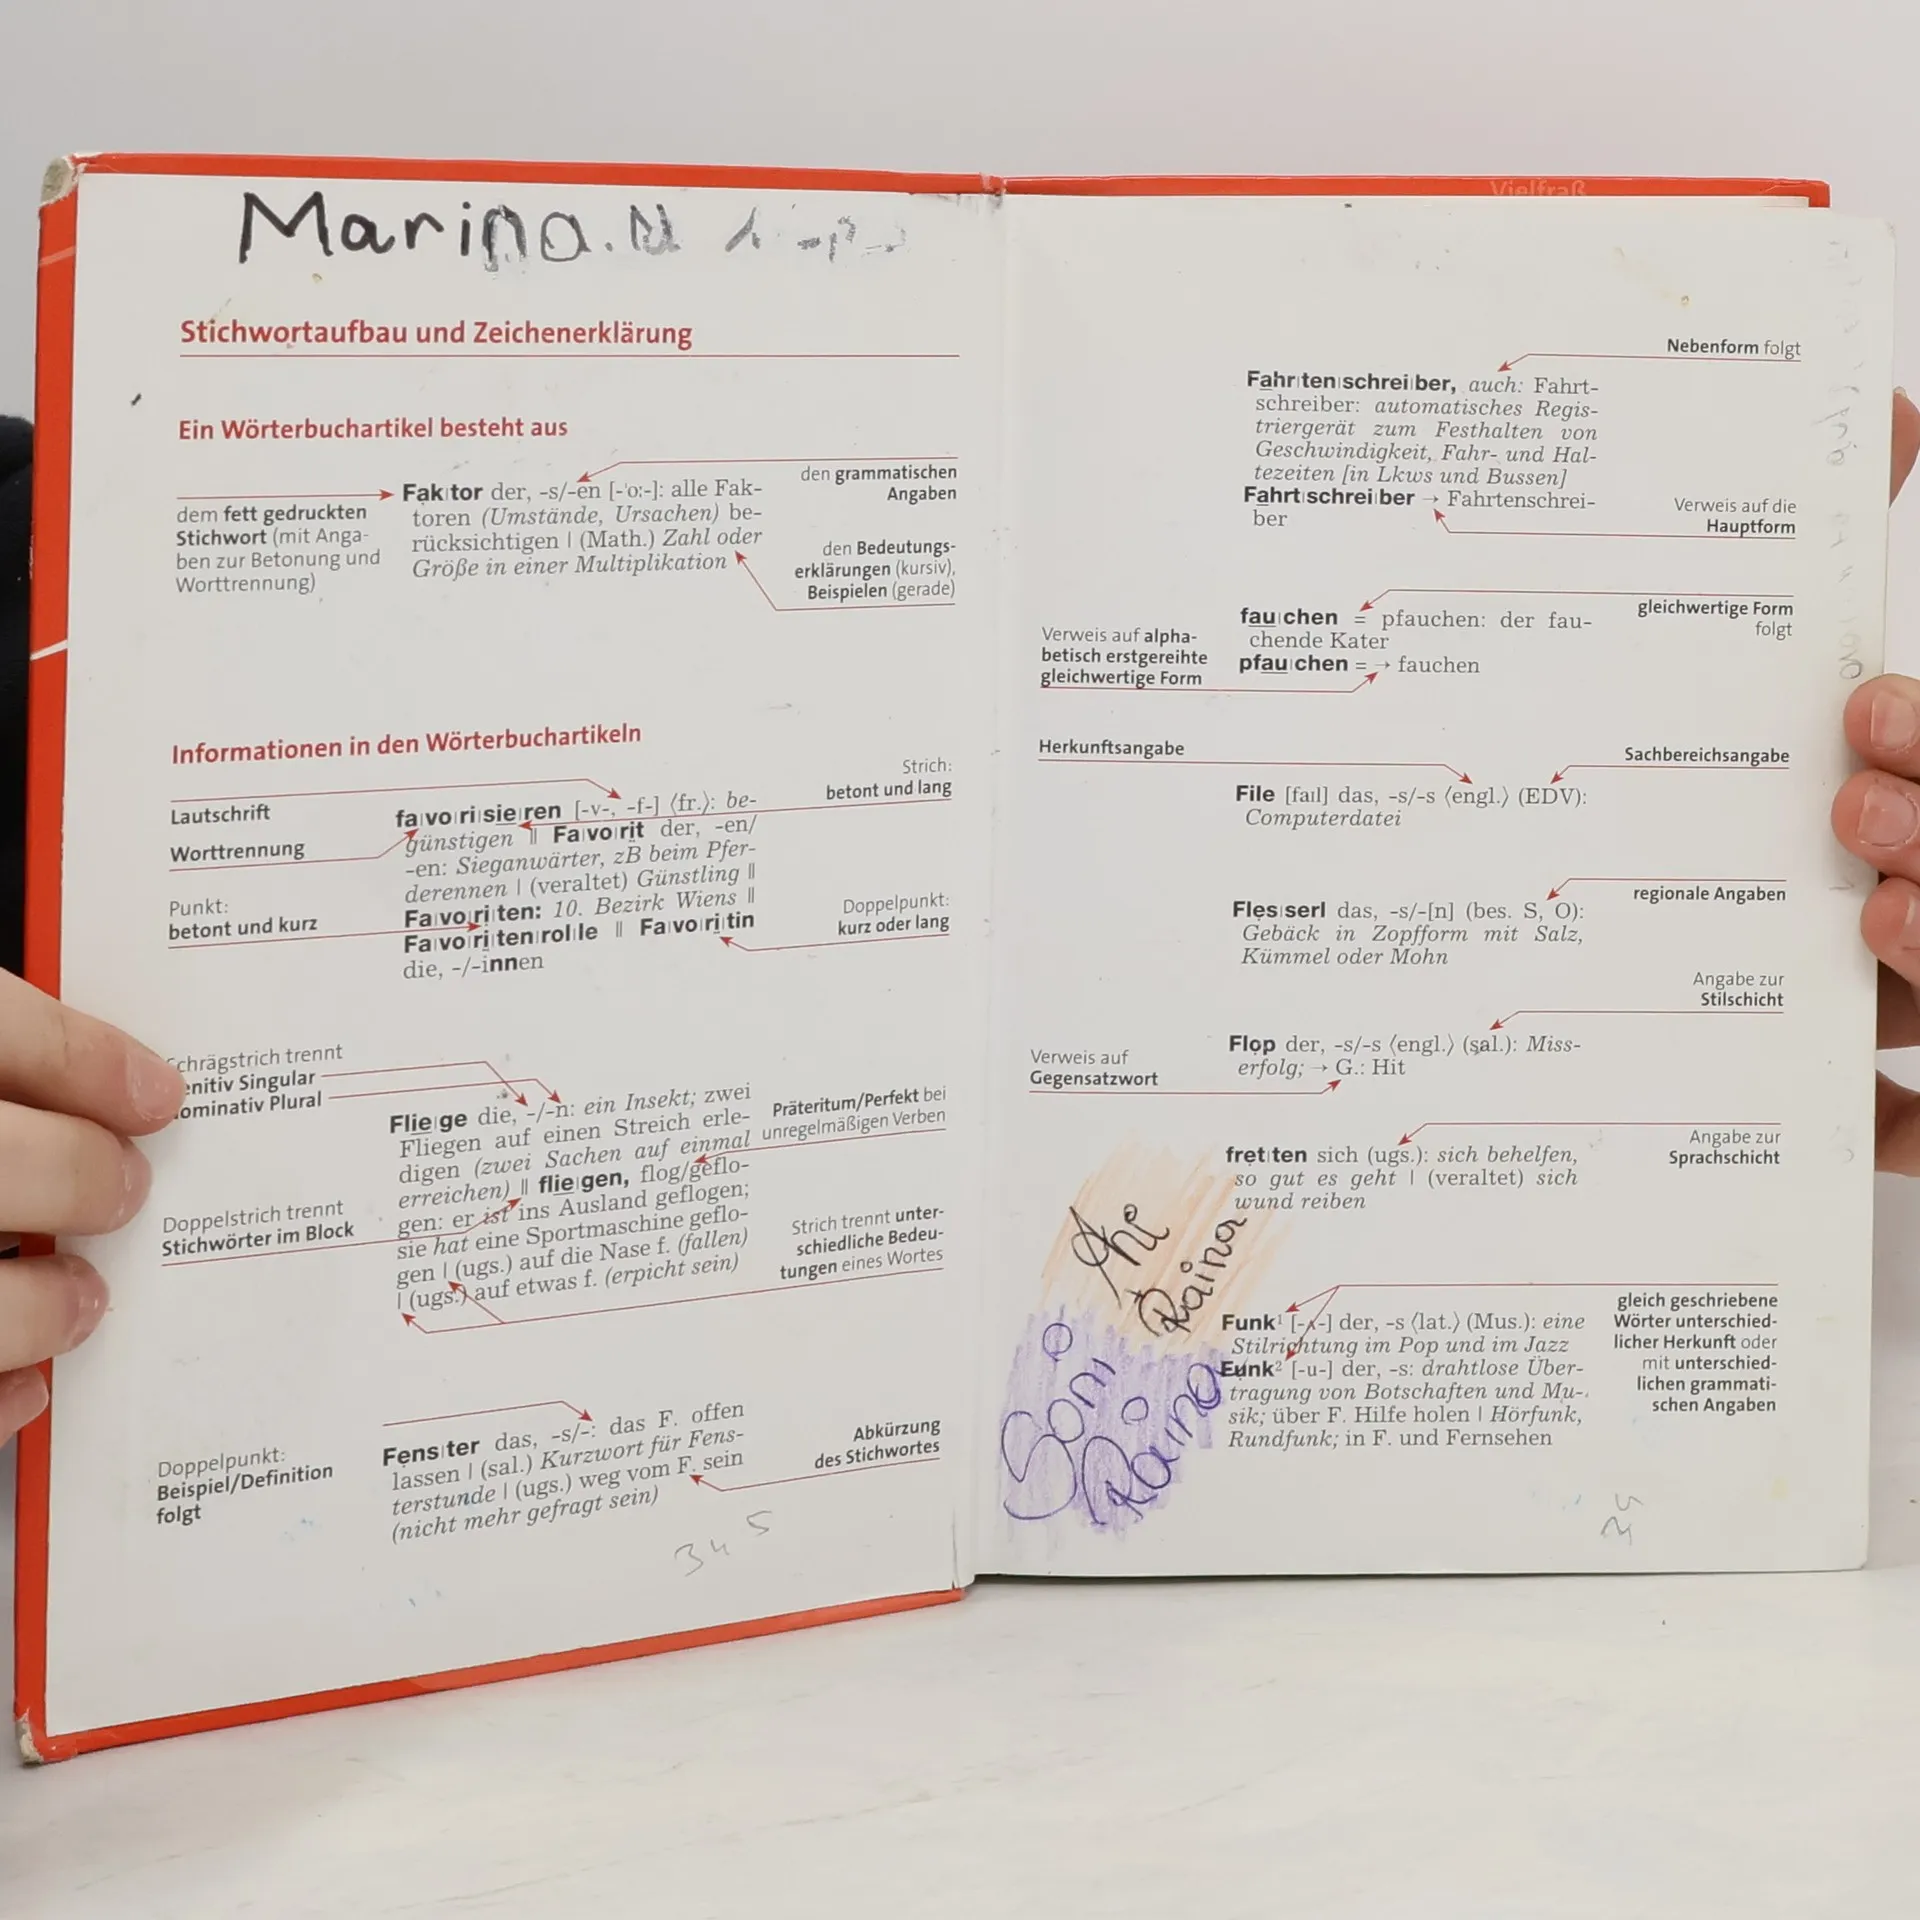 Vielfraß
Marina.N
Stichwortaufbau und Zeichenerklärung
Ein Wörterbuchartikel besteht aus
dem fett gedruckten
Stichwort (mit Anga-
ben zur Betonung und
Worttrennung)
Fak|tor der, -s/-en [-'o:-]: alle Fak-
toren (Umstände, Ursachen) be-
rücksichtigen | (Math.) Zahl oder
Größe in einer Multiplikation
den grammatischen
Angaben
den Bedeutungs-
erklärungen (kursiv),
Beispielen (gerade)
Informationen in den Wörterbuchartikeln
Lautschrift
Worttrennung
Punkt:
betont und kurz
fa|vo|ri|sie|ren [-v-, -f-] ⟨fr.⟩: be-
günstigen || Fa|vo|rit der, -en/
-en: Sieganwärter, zB beim Pfer-
derennen | (veraltet) Günstling ||
Fa|vo|ri|ten: 10. Bezirk Wiens ||
Fa|vo|ri|ten|rol|le || Fa|vo|ri|tin
die, -/-innen
Strich:
betont und lang
Doppelpunkt:
kurz oder lang
chrägstrich trennt
enitiv Singular
ominativ Plural
Doppelstrich trennt
Stichwörter im Block
Flie|ge die, -/-n: ein Insekt; zwei
Fliegen auf einen Streich erle-
digen (zwei Sachen auf einmal
erreichen) || flie|gen, flog/geflo-
gen: er ist ins Ausland geflogen;
sie hat eine Sportmaschine geflo-
gen | (ugs.) auf die Nase f. (fallen)
| (ugs.) auf etwas f. (erpicht sein)
Präteritum/Perfekt bei
unregelmäßigen Verben
Strich trennt unter-
schiedliche Bedeu-
tungen eines Wortes
Doppelpunkt:
Beispiel/Definition
folgt
Fens|ter das, -s/-: das F. offen
lassen | (sal.) Kurzwort für Fens-
terstunde | (ugs.) weg vom F. sein
(nicht mehr gefragt sein)
Abkürzung
des Stichwortes
34 5
Nebenform folgt
Fahr|ten|schrei|ber, auch: Fahrt-
schreiber: automatisches Regis-
triergerät zum Festhalten von
Geschwindigkeit, Fahr- und Hal-
tezeiten [in Lkws und Bussen]
Fahrt|schrei|ber → Fahrtenschrei-
ber
Verweis auf die
Hauptform
Verweis auf alpha-
betisch erstgereihte
gleichwertige Form
fau|chen = pfauchen: der fau-
chende Kater
pfau|chen = → fauchen
gleichwertige Form
folgt
Herkunftsangabe
Sachbereichsangabe
File [faıl] das, -s/-s ⟨engl.⟩ (EDV):
Computerdatei
regionale Angaben
Fles|serl das, -s/-[n] (bes. S, O):
Gebäck in Zopfform mit Salz,
Kümmel oder Mohn
Angabe zur
Stilschicht
Verweis auf
Gegensatzwort
Flop der, -s/-s ⟨engl.⟩ (sal.): Miss-
erfolg; → G.: Hit
Angabe zur
Sprachschicht
fret|ten sich (ugs.): sich behelfen,
so gut es geht | (veraltet) sich
wund reiben
Raina
Soni
Raina
Funk¹ [-ʌ-] der, -s ⟨lat.⟩ (Mus.): eine
Stilrichtung im Pop und im Jazz
Funk² [-u-] der, -s: drahtlose Über-
tragung von Botschaften und Mu-
sik; über F. Hilfe holen | Hörfunk,
Rundfunk; in F. und Fernsehen
gleich geschriebene
Wörter unterschied-
licher Herkunft oder
mit unterschied-
lichen grammati-
schen Angaben